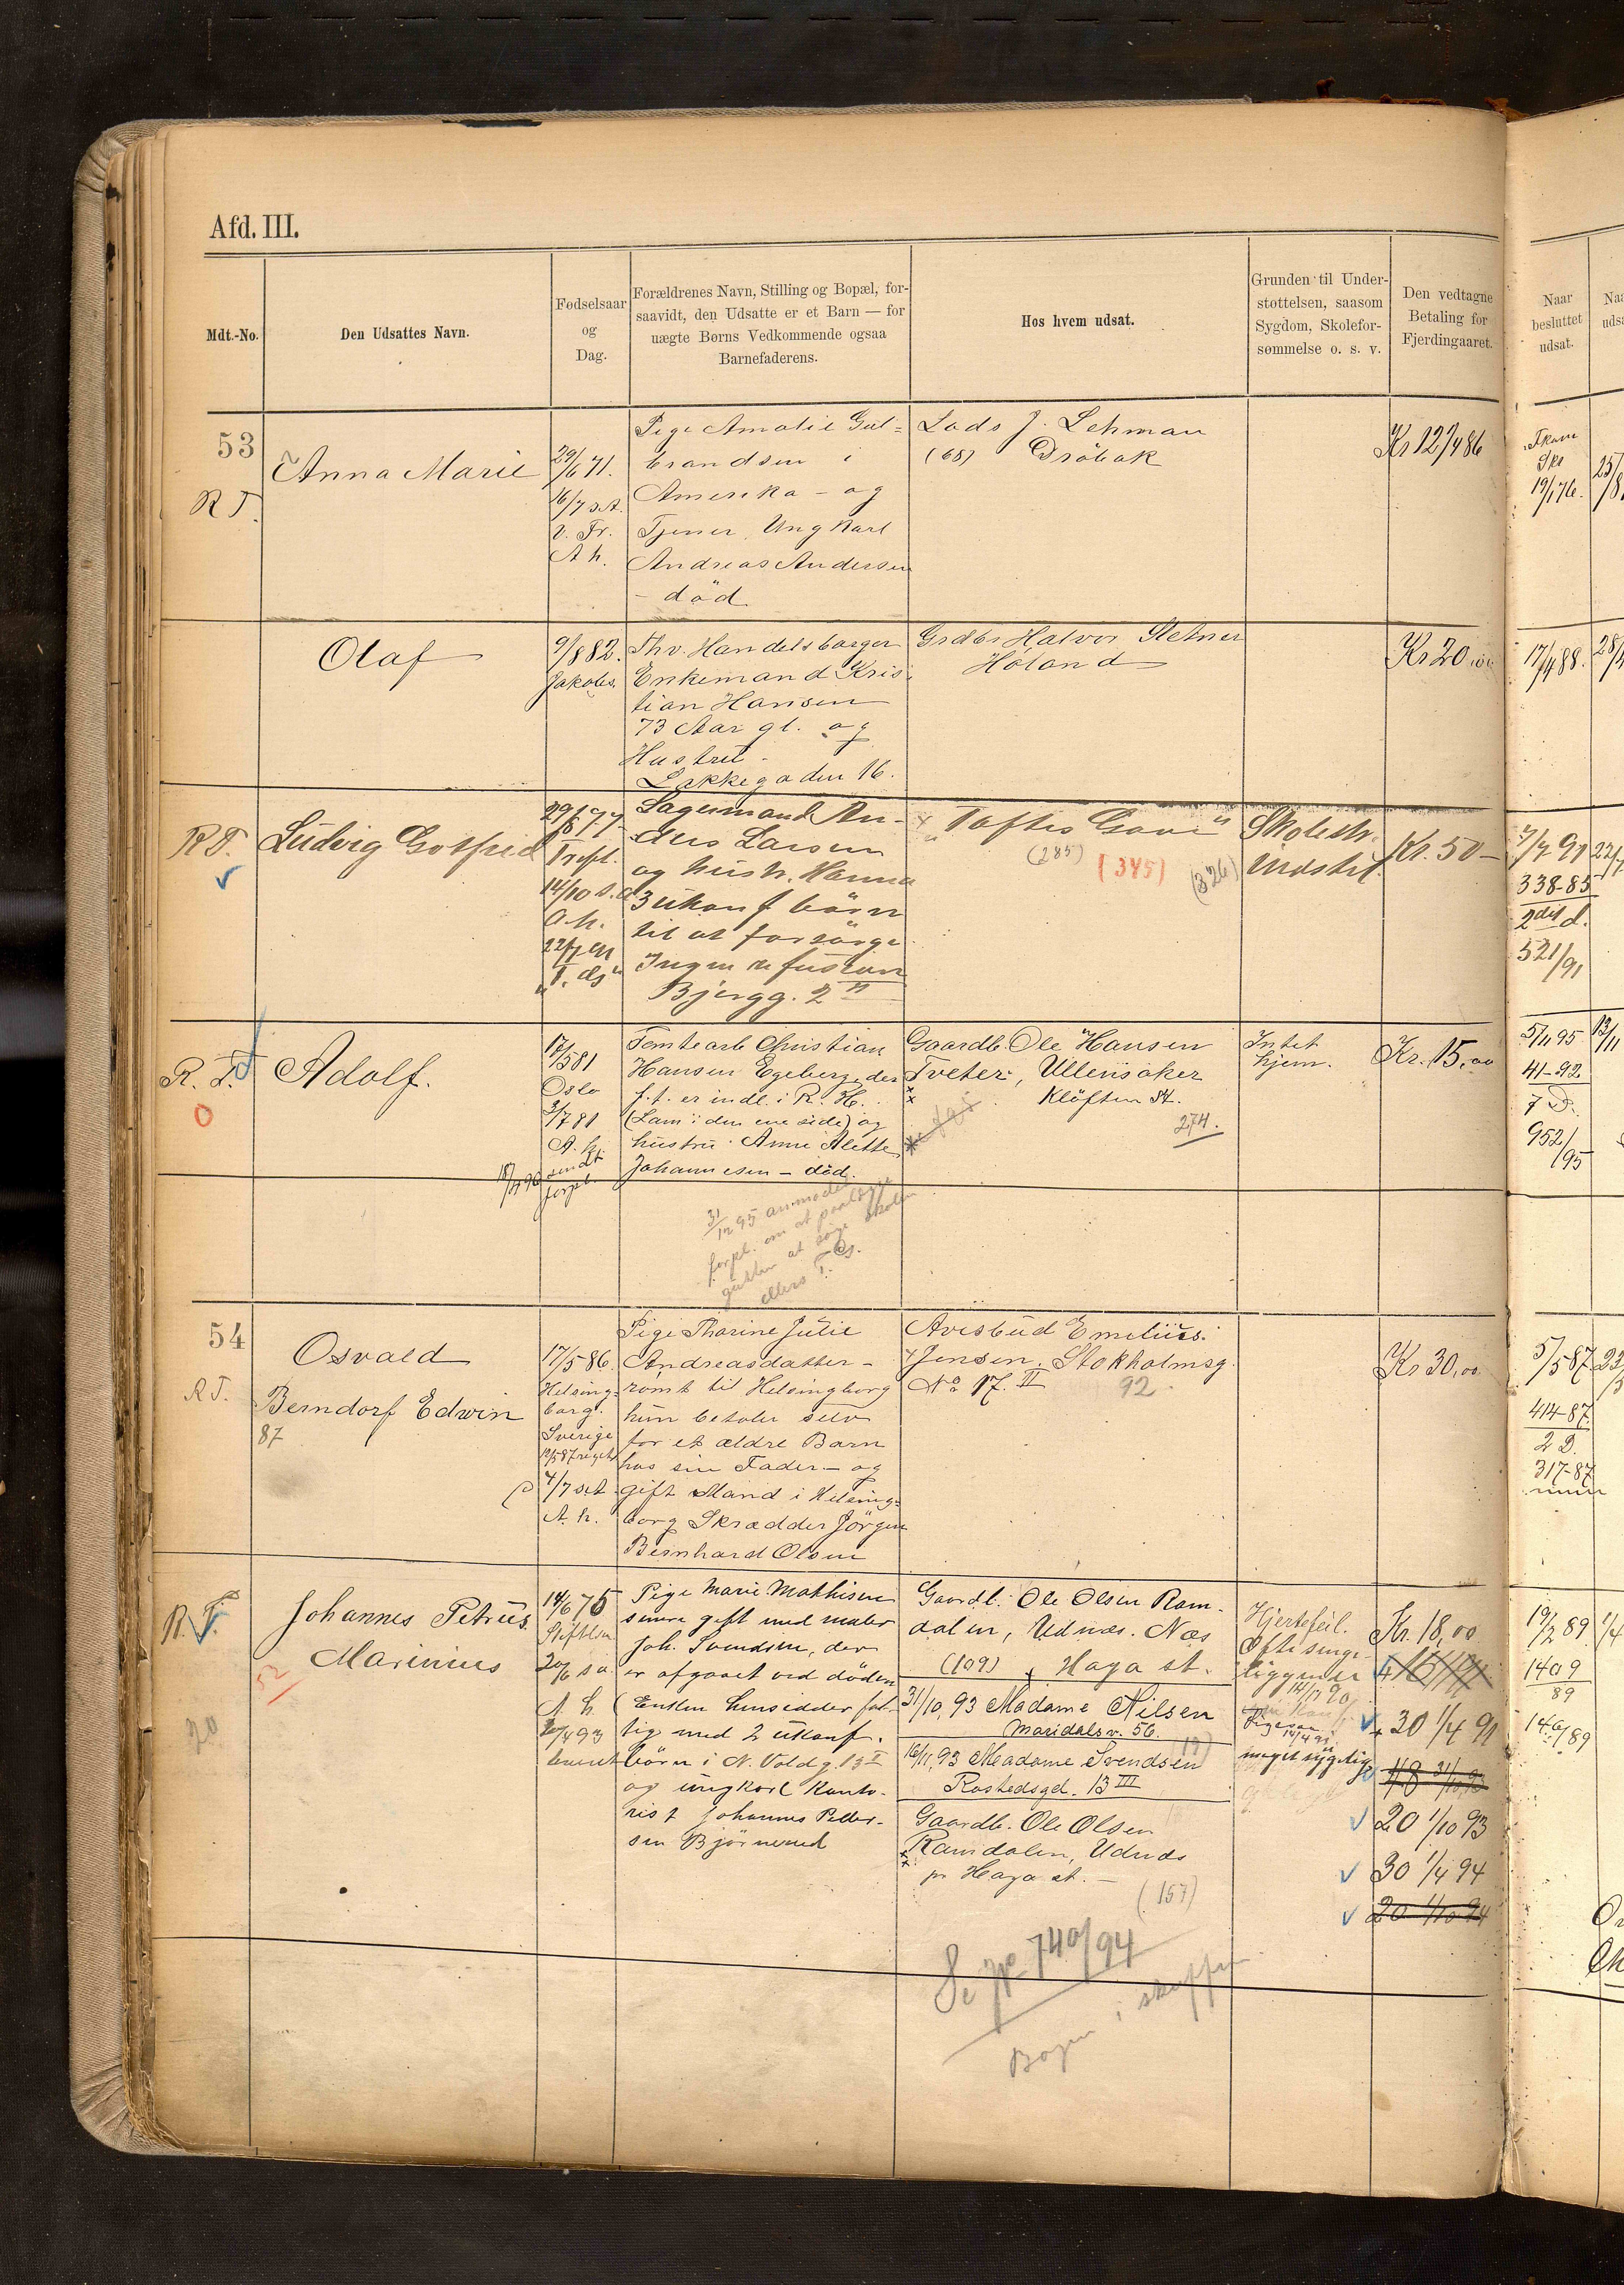 Afd. III.
Mdt.-No.
Den Udsattes Navn.
Fødselsaar
og
Dag.
Forældrenes Navn, Stilling og Bopæl, for-
saavidt, den Udsatte er et Barn — for
uægte Børns Vedkommende ogsaa
Barnefaderens.
Hos hvem udsat.
Grunden til Under-
støttelsen, saasom
Sygdom, Skolefor-
sømmelse o. s. v.
Den vedtagne
Betaling for
Fjerdingaaret.
Naar
besluttet
udsat.
53
R T.
Anna Marie
29/6 71.
16/7 s.A.
V. Fr.
A h.
Pige Amalie Gul-
brandsen i
Amerika - og
Tjener, Ungkarl
Andreas Andersen
- död
Lods J. Lehman
(68) Dröbak
Kr 12 1/4 86
19/1 76.
Olaf
9/8 82.
Jakobs.
Fhv. Handelsborger
Enkemand Kris-
tian Hansen
73 Aar gl. og
Hustru -
Lakkegaden 16.
Grdbr Halvor
Höland
Kr 20,00
17/4 88.
R T.
Ludvig Gotfried
29/8 77
Trefl.
14/10 s. a
A. h.
22/7 91
"T. Gs"
Sagemand An-
ders Larsen
og hustr. Hanna
3 ukonf börn
til at forsörge
Ingen refusion
Bjergg. 2 II
"Toftes Gave"
(285)
(345)
(326)
Skolesk.
Kr. 50 -
7/7 91
338-85
2det d.
521/91
R. T.
0
Adolf.
17/5 81
Oslo
3/7 81
A. h.
18/11 96 sendt
forpl.
Tomtearb Christian
Hansen Egeberg, der
f. t. er indl. i R. H.
(Lam i den ene side) og
hustru Anne Alette
Johannesen - död.
31/12 95 anmodet
forpl. om at paalægge
gutten at söge skolen
ellers T. Gs.
Gaardb. Ole Hansen
Tveter, Ullensaker
Klöften St.
274.
Intet
hjem.
Kr. 15,00
5/11 95
41-92
7 D.
952/95
54
R T.
Osvald
Berndorf Edwin
87
17/5 86.
Helsing-
borg.
Sverige
4/7 s A
A. h.
Pige Thorine Julie
Andreasdatter -
römt til Helsingborg
hun betaler selv
for et ældre Barn
hos sin Fader - og
gift Mand i Helsing-
borg Skrædder Jörgen
Bernhard Olsen
Avisbud Emelius
Jensen. Stokholmsg.
No 17. II
92
Kr 30,00
5/5 87
414-87
2 D.
317-87
R. T.
52
20
Johannes Petrus
Marinius
14/6 75
Stiftelsen
20/6 s a
A. h
Pige Marie Mathisen
senere gift med maler
Joh. Svendsen, der
er afgaaet ved döden
(Enken hensidder fat-
tig med 2 ukonf.
börn i N. Voldg. 13 II
og ungkarl Konto-
rist Johannes Peder-
sen Björnerud
Gaardb. Ole Olsen Ram-
dalen, Udnæs. Næs
(109) Haga st.
31/10, 93 Madame Nilsen
Maridalsv. 56.
16/11, 93 Madame Svendsen
Rostedsgd. 13 III
Gaardb. Ole Olsen
Ramdalen, Udnæs
pr Haga st. -
(157)
Se jr 740/94
Bogen i skuffen
Hjertefeil.
Ofte senge-
liggende
meget sygelig
Kr. 18,00
30 1/4 91
20 1/10 93
30 1/4 94
20 1/10 94
19/2 89
1409
89
140/89